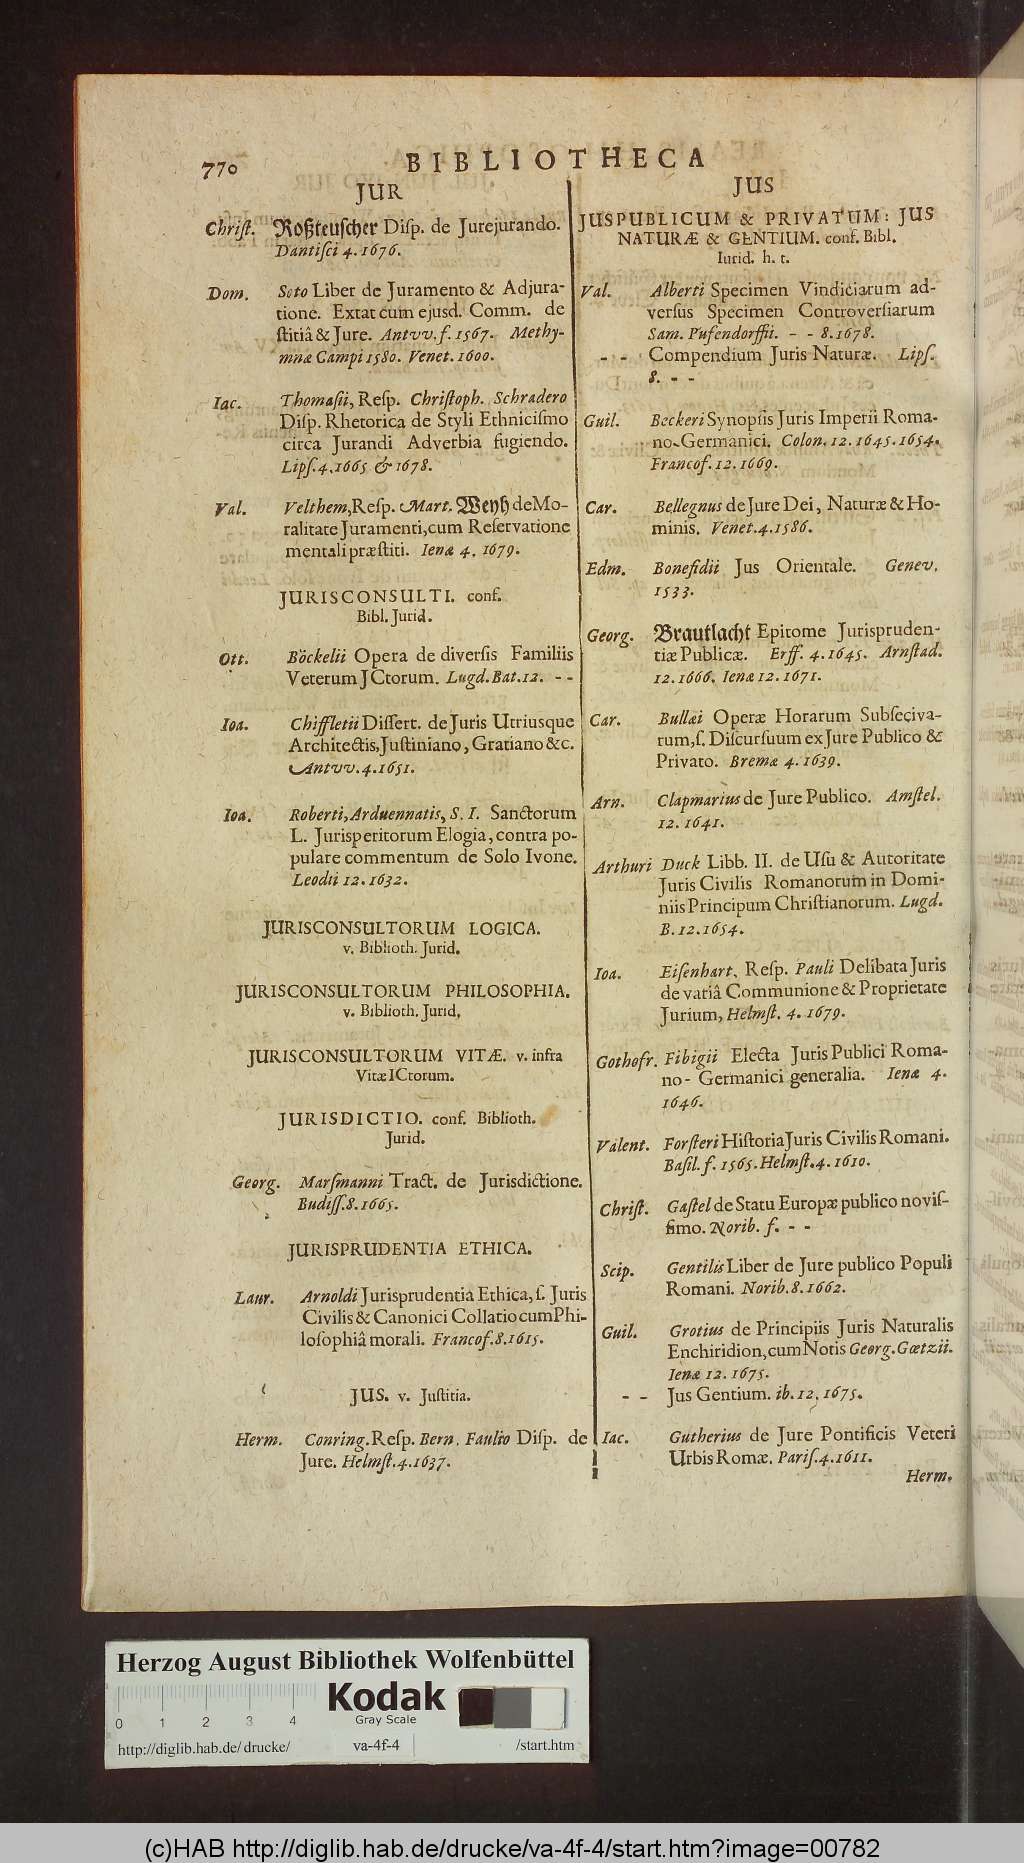 770
BIBLIOTHECA
JUR
Chriſt. Roßteuſcher Diſp. de Jurejurando.
Dantiſci 4. 1676.
Dom. Soto Liber de Juramento & Adjura-
tione. Extat cum ejusd. Comm. de
ſtitiâ & Jure. Antvv. f. 1567. Methy-
mnæ Campi 1580. Venet. 1600.
Iac. Thomaſii, Reſp. Chriſtoph. Schradero
Diſp. Rhetorica de Styli Ethniciſmo
circa Jurandi Adverbia fugiendo.
Lipſ. 4. 1665 & 1678.
Val. Velthem, Reſp. Mart. Weyh de Mo-
ralitate Juramenti, cum Reſervatione
mentali præſtiti. Ienæ 4. 1679.
JURISCONSULTI. conf.
Bibl. Jurid.
Ott. Böckelii Opera de diverſis Familiis
Veterum JCtorum. Lugd. Bat. 12. - -
Ioa. Chiffletii Diſſert. de Juris Utriusque
Architectis, Juſtiniano, Gratiano &c.
Antvv. 4. 1651.
Ioa. Roberti, Arduennatis, S. I. Sanctorum
L. Jurisperitorum Elogia, contra po-
pulare commentum de Solo Ivone.
Leodii 12. 1632.
JURISCONSULTORUM LOGICA.
v. Biblioth. Jurid.
JURISCONSULTORUM PHILOSOPHIA.
v. Biblioth. Jurid.
JURISCONSULTORUM VITÆ. v. infra
Vitæ ICtorum.
JURISDICTIO. conf. Biblioth.
Jurid.
Georg. Marſmanni Tract. de Jurisdictione.
Budiſſ. 8. 1665.
JURISPRUDENTIA ETHICA.
Laur. Arnoldi Jurisprudentia Ethica, ſ. Juris
Civilis & Canonici Collatio cum Phi-
loſophiâ morali. Francof. 8. 1615.
JUS. v. Juſtitia.
Herm. Conring. Reſp. Bern. Faulio Diſp. de
Jure. Helmſt. 4. 1637.
JUS
JUS PUBLICUM & PRIVATUM: JUS
NATURÆ & GENTIUM. conf. Bibl.
Iurid. h. t.
Val. Alberti Specimen Vindiciarum ad-
verſus Specimen Controverſiarum
Sam. Pufendorffii. - - 8. 1678.
- - Compendium Juris Naturæ. Lipſ.
8. - -
Guil. Beckeri Synopſis Juris Imperii Roma-
no-Germanici. Colon. 12. 1645. 1654.
Francof. 12. 1669.
Car. Bellegnus de Jure Dei, Naturæ & Ho-
minis. Venet. 4. 1586.
Edm. Bonefidii Jus Orientale. Genev.
1533.
Georg. Brautlacht Epitome Jurispruden-
tiæ Publicæ. Erff. 4. 1645. Arnſtad.
12. 1666. Ienæ 12. 1671.
Car. Bullæi Operæ Horarum Subſeciva-
rum, ſ. Diſcurſuum ex Jure Publico &
Privato. Bremæ 4. 1639.
Arn. Clapmarius de Jure Publico. Amſtel.
12. 1641.
Arthuri Duck Libb. II. de Uſu & Autoritate
Juris Civilis Romanorum in Domi-
niis Principum Chriſtianorum. Lugd.
B. 12. 1654.
Ioa. Eiſenhart. Reſp. Pauli Delibata Juris
de variâ Communione & Proprietate
Jurium, Helmſt. 4. 1679.
Gothofr. Fibigii Electa Juris Publici Roma-
no-Germanici generalia. Ienæ 4.
1646.
Valent. Forſteri Hiſtoria Juris Civilis Romani.
Baſil. f. 1565. Helmſt. 4. 1610.
Chriſt. Gaſtel de Statu Europæ publico noviſ-
ſimo. Norib. f. - -
Scip. Gentilis Liber de Jure publico Populi
Romani. Norib. 8. 1662.
Guil. Grotius de Principiis Juris Naturalis
Enchiridion, cum Notis Georg. Gœtzii.
Ienæ 12. 1675.
- - Jus Gentium. ib. 12. 1675.
Iac. Gutherius de Jure Pontificis Veteri
Urbis Romæ. Pariſ. 4. 1611.
Herm.
Herzog August Bibliothek Wolfenbüttel
Kodak
Gray Scale
0 1 2 3 4
http://diglib.hab.de/drucke/ va-4f-4 /start.htm
(c)HAB http://diglib.hab.de/drucke/va-4f-4/start.htm?image=00782